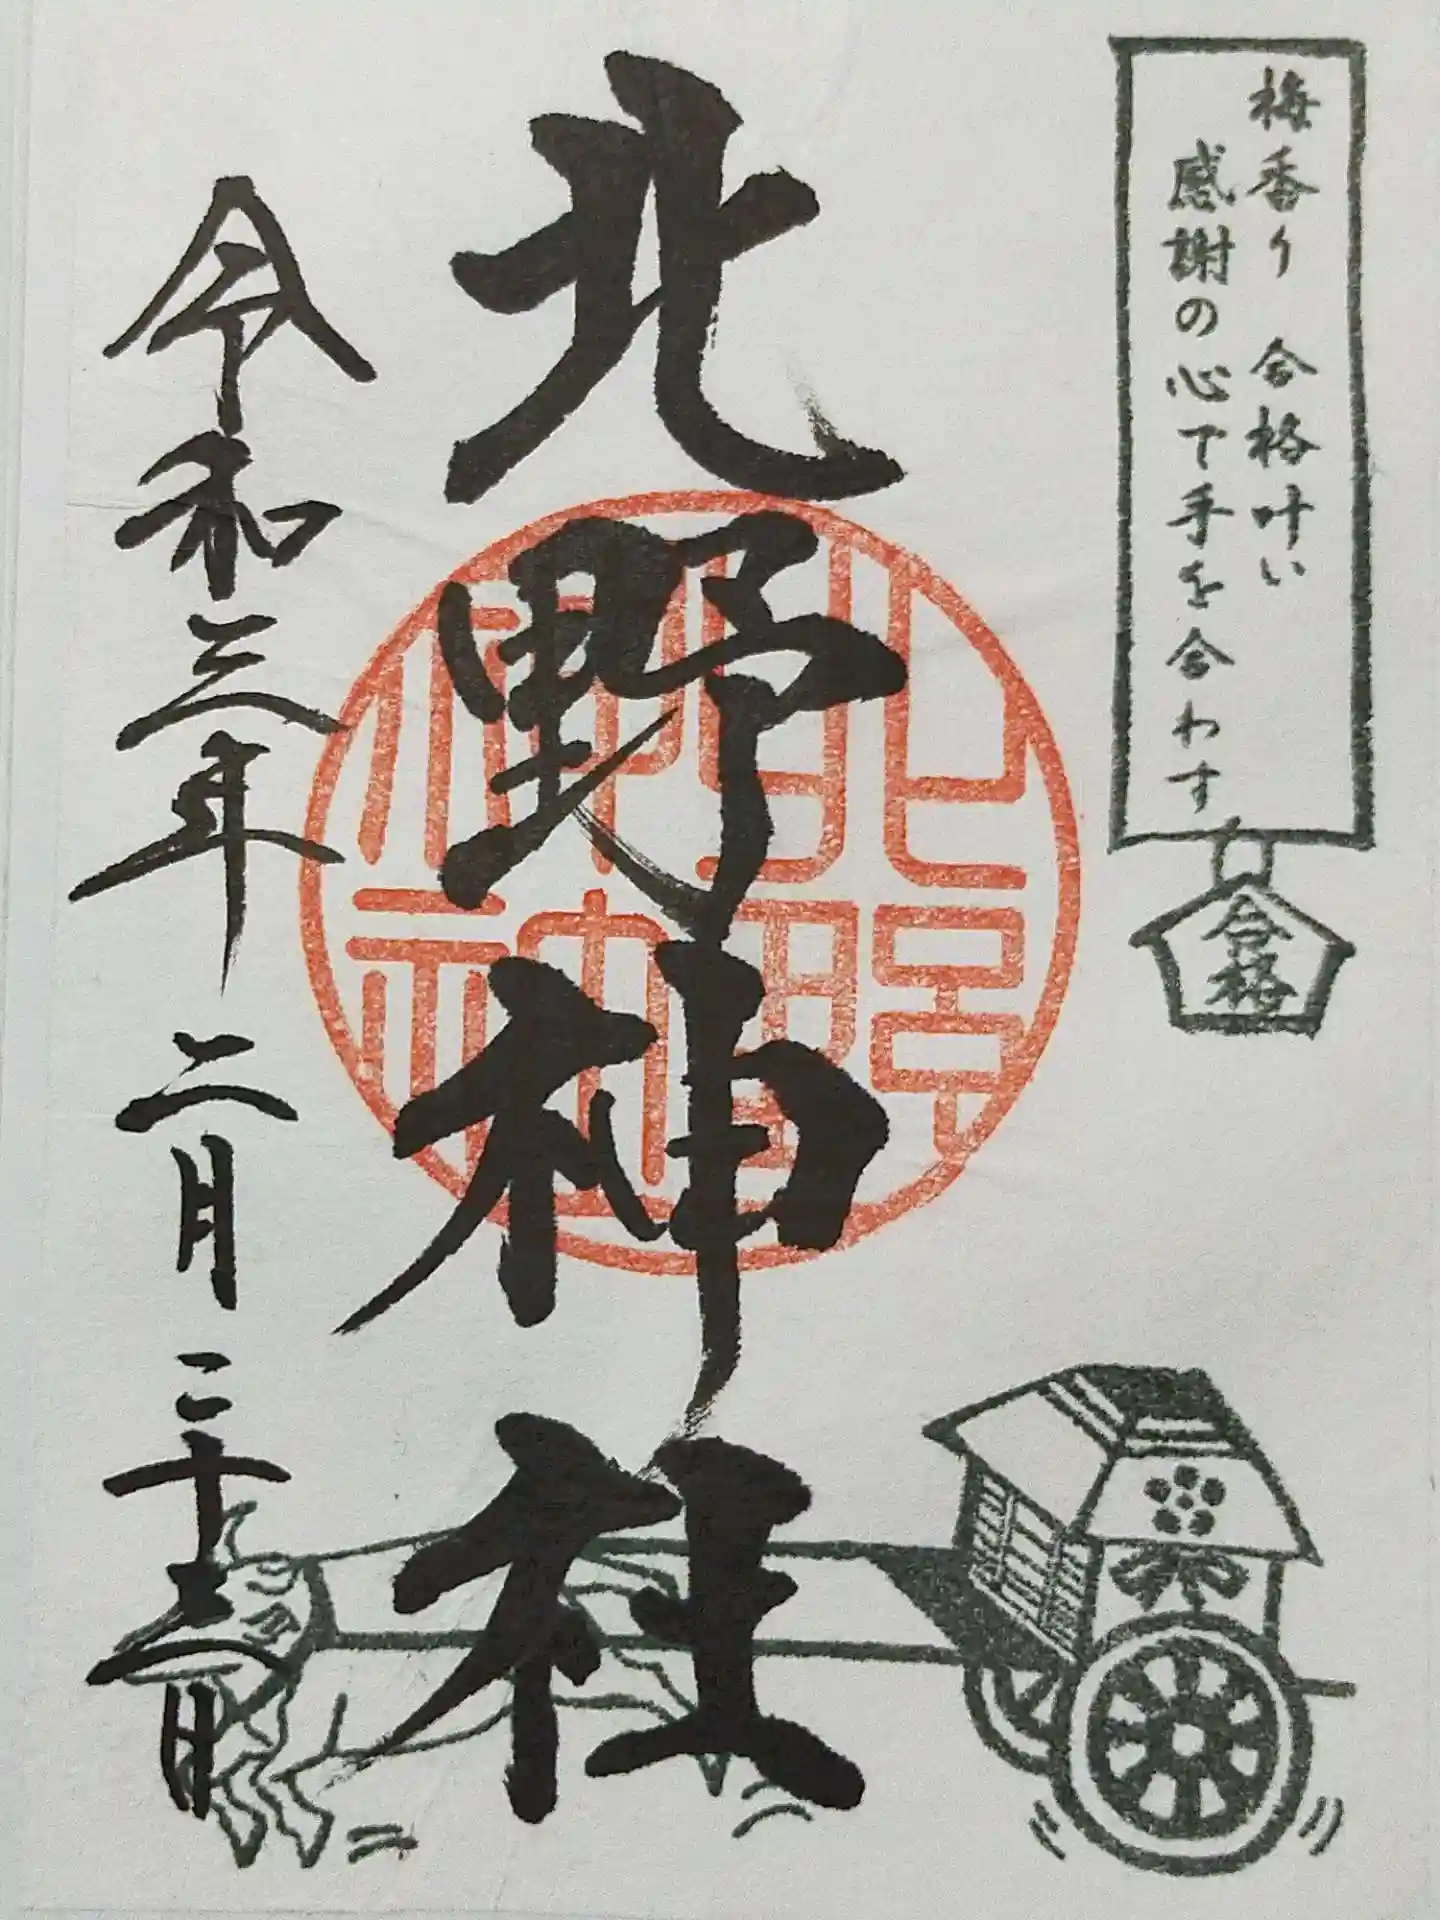 梅香り 合格叶い
感謝の心で手を合わす
合格
北野神社
令和三年 二月 二十三日